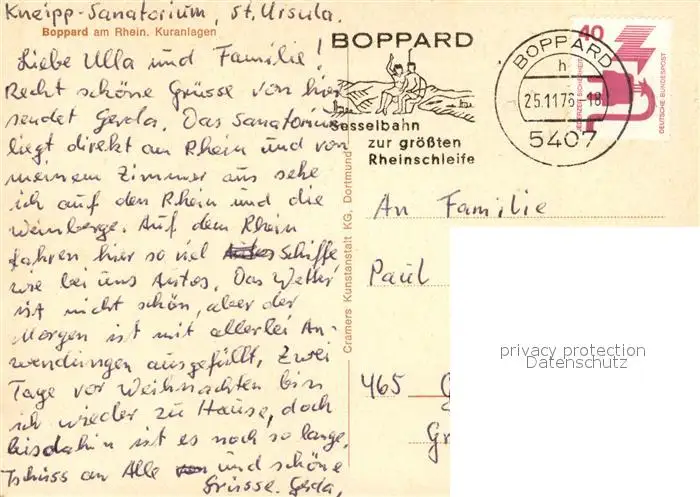 Kneipp-Sanatorium, St. Ursula.
Boppard am Rhein. Kuranlagen
Liebe Ulla und Familie!
Recht schöne Grüsse von hier
sendet Gerda. Das Sanatorium
liegt direkt am Rhein und von
meinem Zimmer aus sehe
ich auf den Rhein und die
Weinberge. Auf dem Rhein
fahren hier so viel Schiffe,
wie bei uns Autos. Das Wetter
ist nicht schön, aber der
Morgen ist mit allerlei An-
wendungen ausgefüllt. Zwei
Tage vor Weihnachten bin
ich wieder zu Hause, doch
bis dahin ist es noch so lange.
Tschüss an Alle und schöne
Grüsse. Gerda.
Cramers Kunstanstalt KG, Dortmund
BOPPARD
Sesselbahn
zur größten
Rheinschleife
BOPPARD
h
25.11.76-18
5407
40
JEDERZEIT SICHERHEIT
DEUTSCHE BUNDESPOST
An Familie
Paul
465
privacy protection
Datenschutz